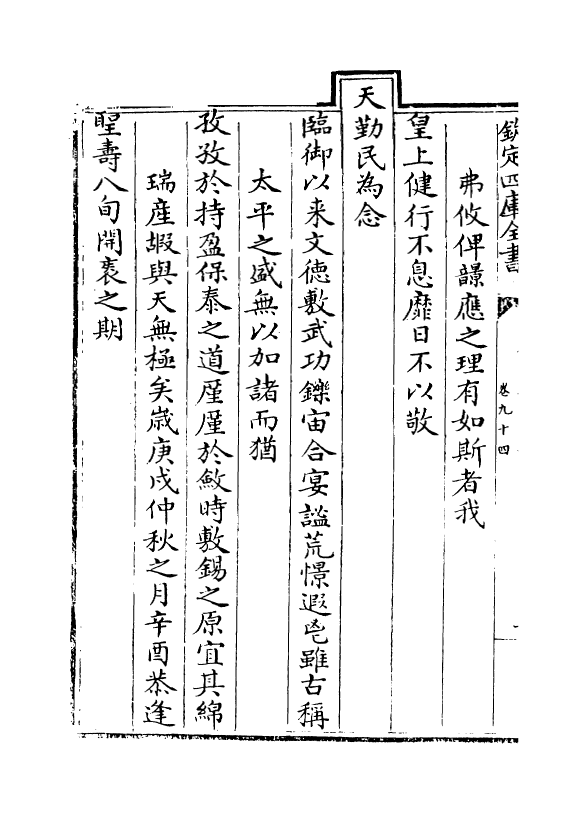 欽定四庫全書
卷九十四
弗攸俾韻應之理有如斯者我
皇上健行不息靡日不以敬
天勤民為念
臨御以来文德敷武功鑠宙合宴謐荒憬遐鬯雖古稱
太平之盛無以加諸而猶
孜孜於持盈保泰之道厪厪於斂時敷錫之原宜其綿
瑞産嘏與天無極矣歲庚戌仲秋之月辛酉恭逢
聖壽八旬開袠之期